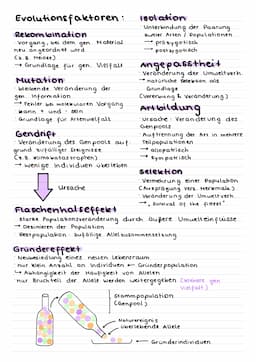 Evolutionsfaktoren:
Rekombination
- Vorgang, bei dem gen. Material
neu angeordnet wird
(z.B. Meiose)
→ Grundlage für gen. Vielfalt
Mutation
- bleibende Veränderung der
gen. Information
→ Fehler bei molekularen Vorgang
- kann + und - sein
- Grundlage für Artenvielfalt
Gendrift
- Veränderung des Genpools auf-
grund zufälliger Ereignisse
(z.B. Naturkatastrophen)
→ wenige Individuen überleben
Ursache
Isolation
- Unterbindung der Paarung
zweier Arten / Populationen
→ präzygotisch
→ postzygotisch
Angepasstheit
- Veränderung der Umwelt
→ natürliche Selektion als
Grundlage
(Vererbung & Veränderung)
Artbildung
- Ursache: Veränderung des
Genpools
- Auftrennung der Art in mehrere
Teilpopulationen
→ allopatrisch
→ sympatrisch
Selektion
- Vermehrung einer Population
(Ausprägung vers. Merkmale)
- Veränderung der Umwelt
→ "survival of the fittest"
Flaschenhalseffekt
- starke Populationsveränderung durch äußere Umwelteinflüsse
→ Dezimieren der Population
- Restpopulation: zufällige Allelzusammensetzung
Gründereffekt
- Neubesiedlung eines neuen Lebensraum
- nur klein Anzahl an Individuen ← Gründerpopulation
↳ Abhängigkeit der Häufigkeit von Allelen
- nur Bruchteil der Allele werden weitergegeben (kleinere gen.
Vielfalt)
Stammpopulation
(Genpool)
Naturereignis
überlebende Allele
Gründerindividuen